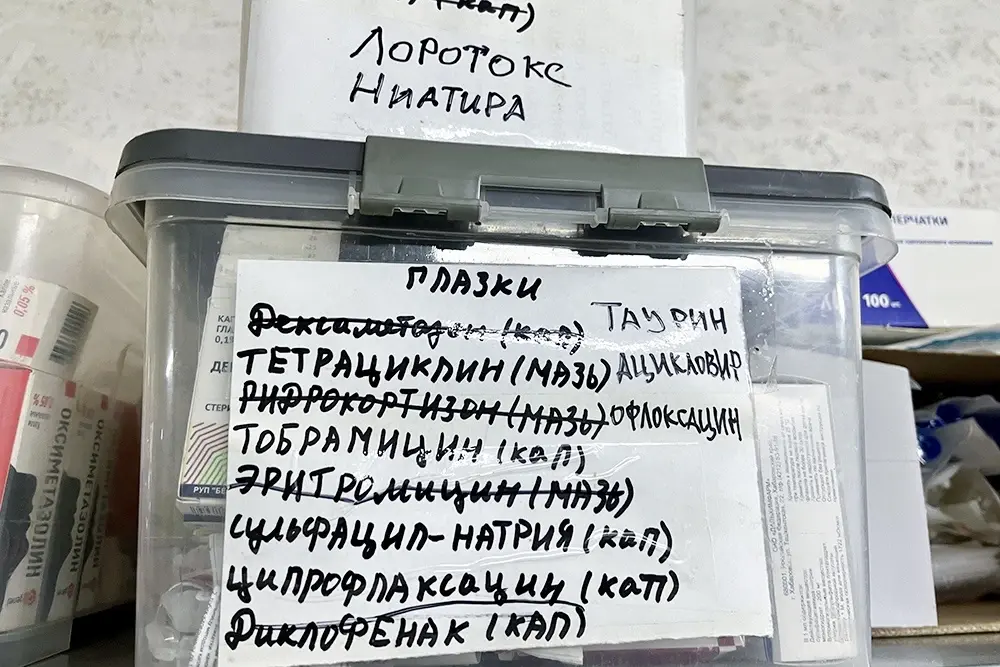 (кап)
ЛОРОТОКС
НИАТИРА
ГЛАЗКИ
Дексаметозон (кап) ТАУРИН
ТЕТРАЦИКЛИН (МАЗЬ) АЦИКЛОВИР
ГИДРОКОРТИЗОН (МАЗЬ) ОФЛОКСАЦИН
ТОБРАМИЦИН (кап)
ЭРИТРОМИЦИН (МАЗЬ)
СУЛЬФАЦИЛ-НАТРИЯ (кап)
ЦИПРОФЛАКСАЦИН (кап)
ДИКЛОФЕНАК (КАП)
0,05 %
ОКСИМЕТАЗОЛИН
ОКСИМЕТАЗОЛИН
КАП
ГЛА
0,1%
ДЕ
СТЕРИ
РУП "БЕ
ПЕРЧАТКИ
100